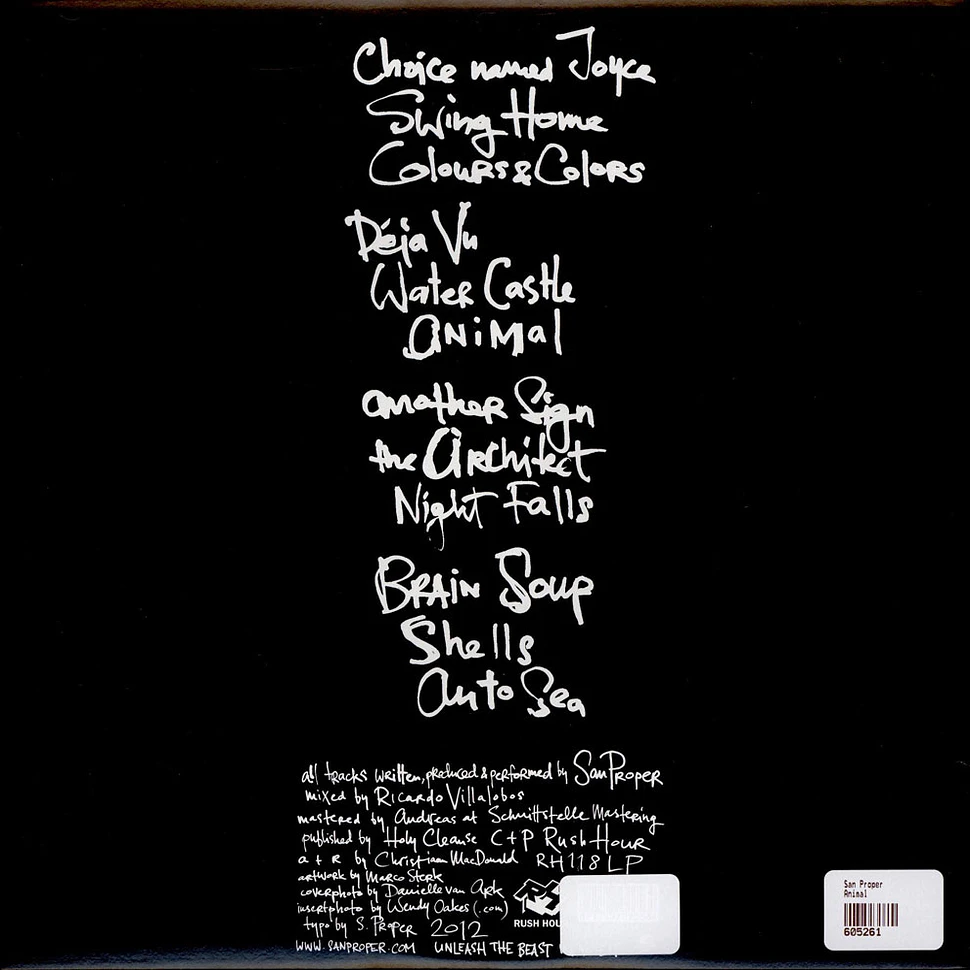 Choice named Joyce
Swing Home
Colours & Colors
Déja Vu
Water Castle
ANiMAl
another Sign
the Architect
Night Falls
BRAiN Soup
Shells
Auto Sea
all tracks written, produced & performed by San Proper
mixed by Ricardo Villalobos
mastered by Andreas at Schnittstelle Mastering
published by Holy Cleanse C+P Rush Hour
a + R by Christiaan MacDonald RH118LP
artwork by Marco Sterk
coverphoto by Danielle van Ark
insertphoto by Wendy Oakes (.com)
typo by S. Proper 2012
RUSH
WWW.SANPROPER.COM UNLEASH THE BEAST
San Proper
Animal
605261